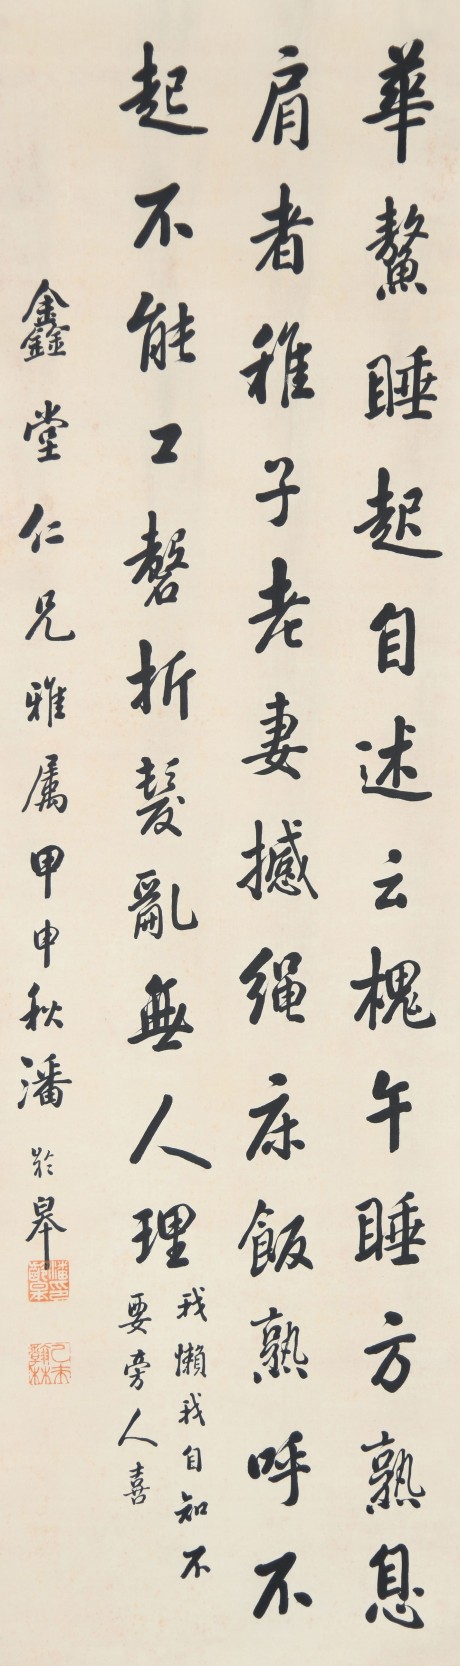 華鰲睡起自述云槐午睡方熟息
肩者稚子老妻撼绳床飯熟呼不
起不能工磬折髮亂無人理
我懶我自知不
要旁人喜
鑫堂仁兄雅属甲申秋潘龄皋
潘印齡皋
乙未翰林